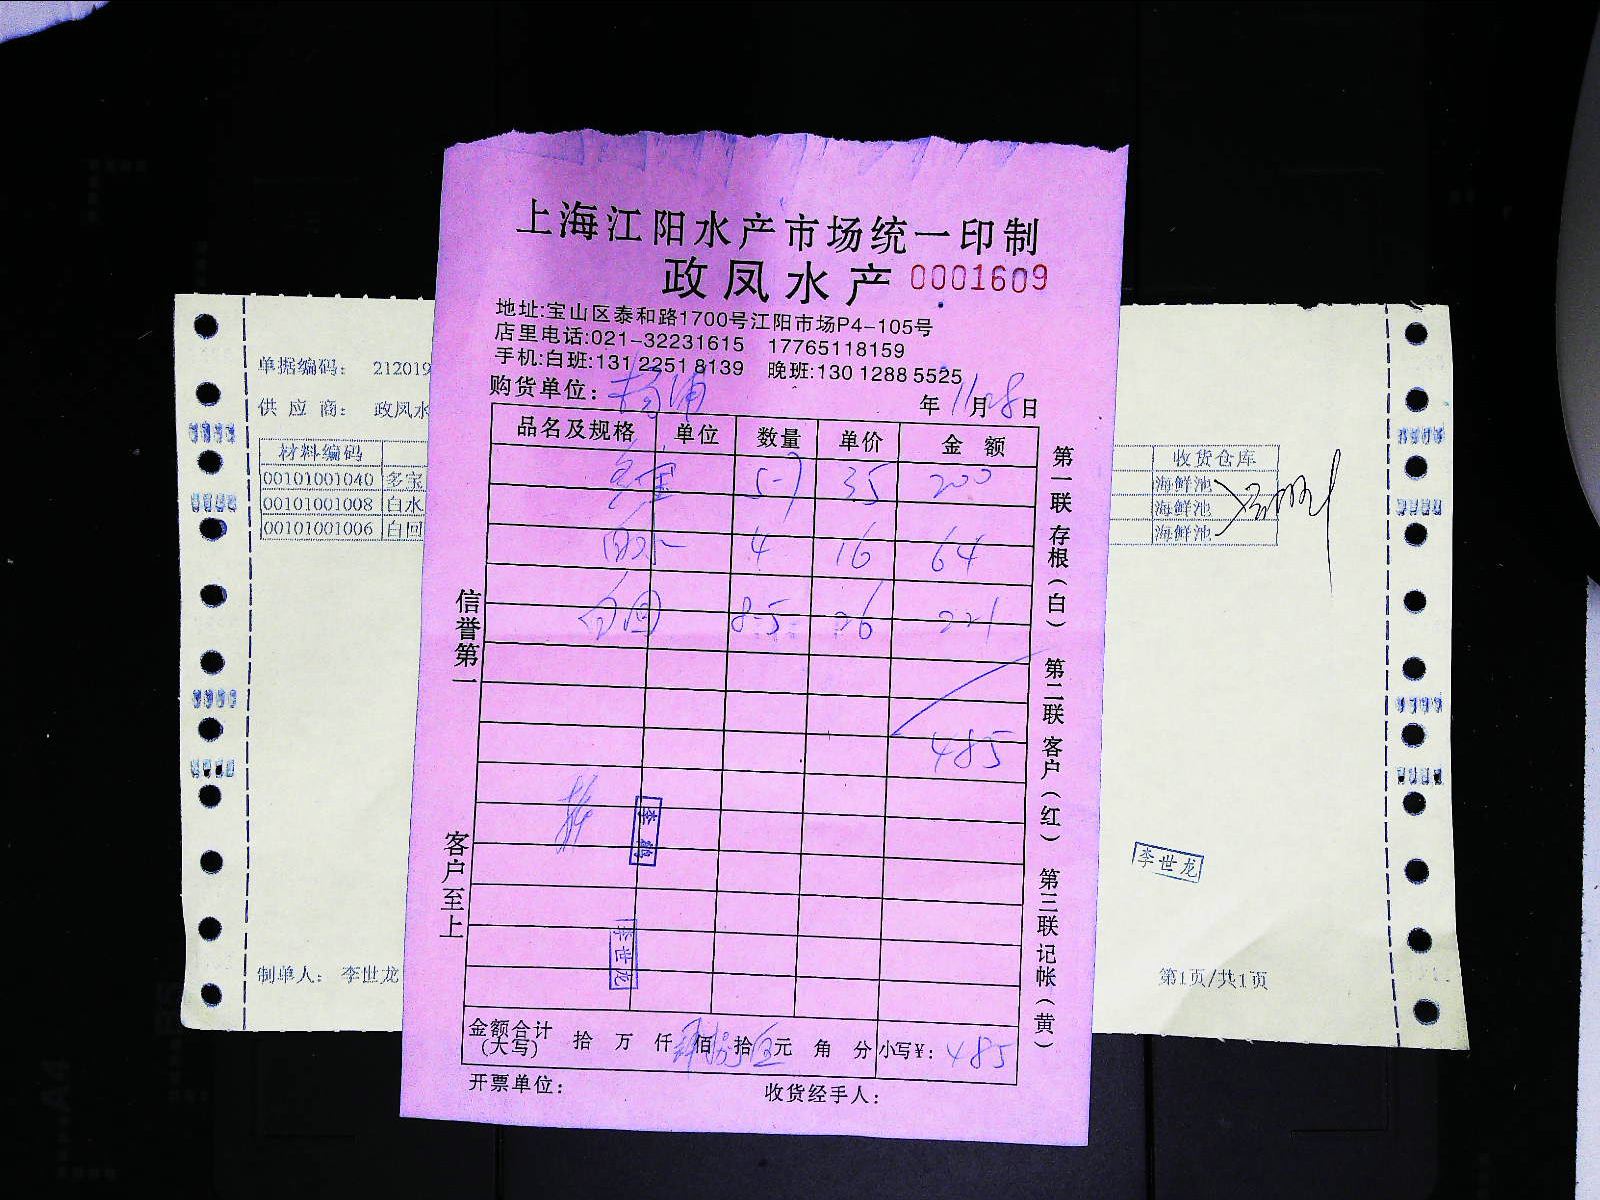 上海江阳水产市场统一印制
政凤水产 0001609
地址:宝山区泰和路1700号江阳市场P4-105号
店里电话:021-32231615 17765118159
手机:白班:131 2251 8139 晚班:130 1288 5525
购货单位: 杨浦 年11月28日
品名及规格 单位 数量 单价 金额
多宝 5-7 35 200
白水 4 16 64
白回 8-5 26 221
485
李鹤
李世龙
金额合计(大写) 拾 万 仟 肆佰捌拾伍元 角 分 小写¥: 485
开票单位: 收货经手人:
信誉第一
客户至上
第一联 存根(白) 第二联 客户(红) 第三联 记帐(黄)
单据编码: 212019
供应商: 政凤水
材料编码
00101001040 多宝
00101001008 白水
00101001006 白回
制单人: 李世龙
收货仓库
海鲜池
海鲜池
海鲜池
李世龙
第1页/共1页